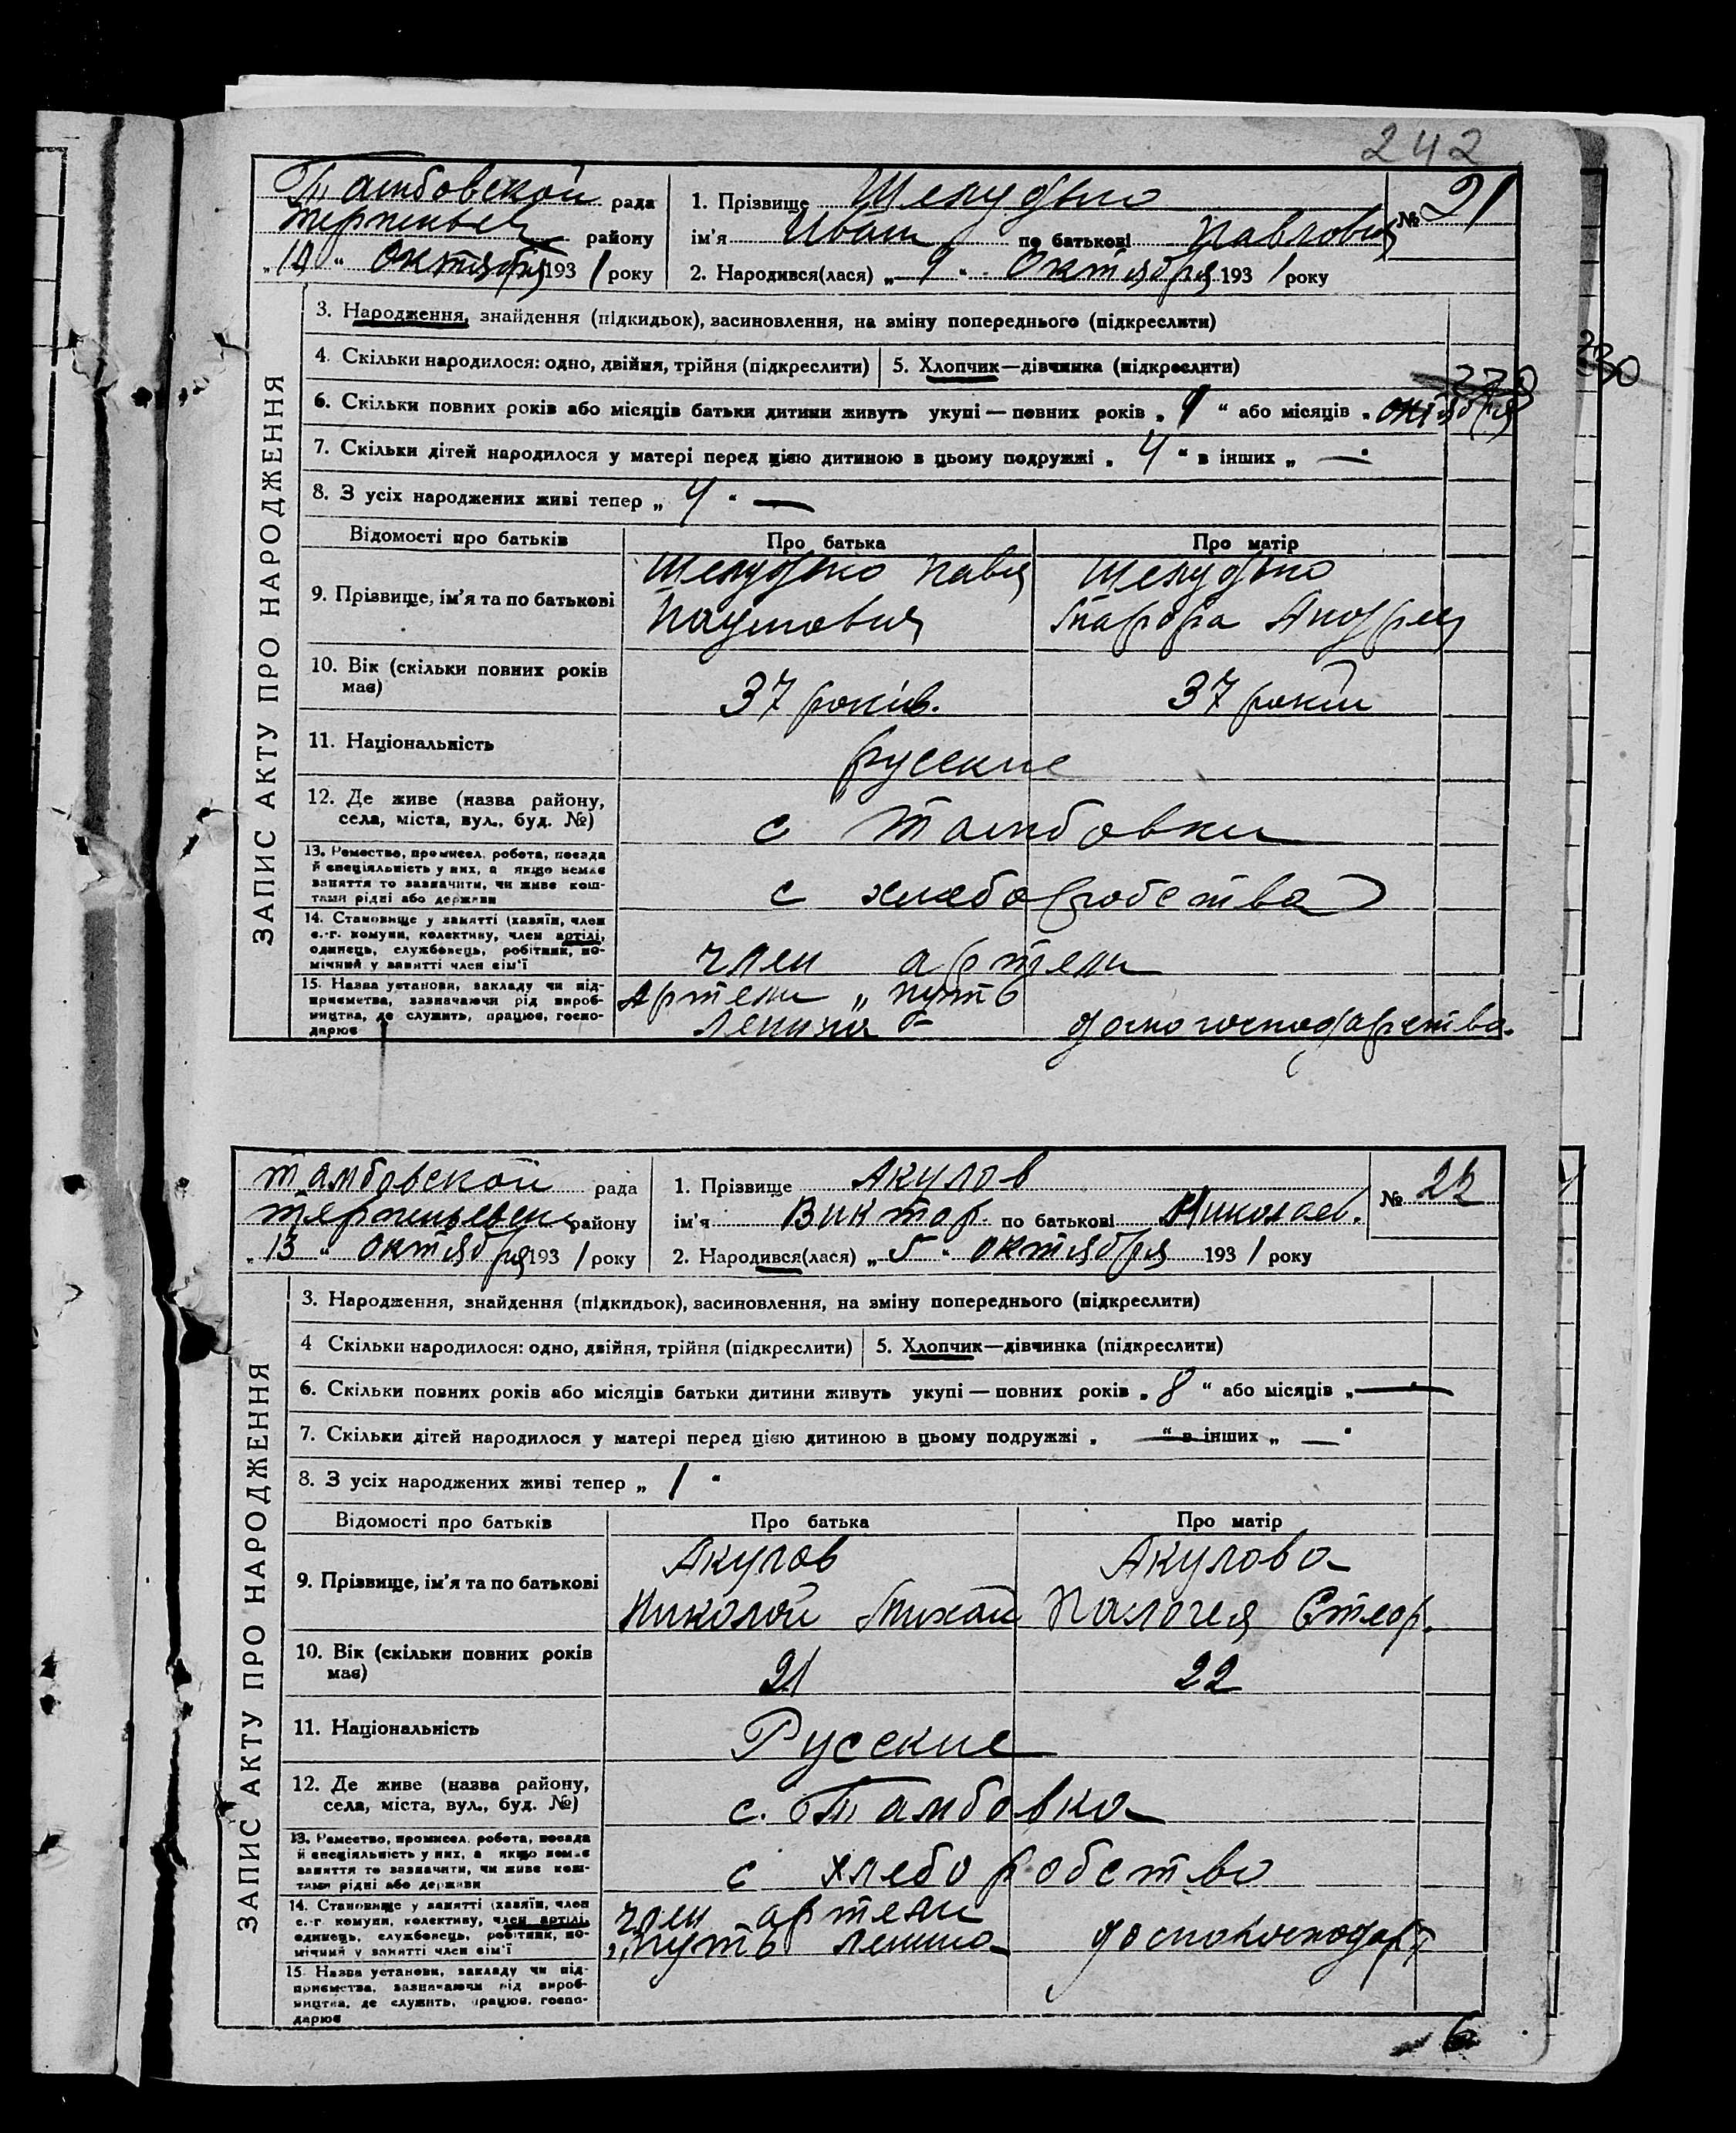 242
Тамбовской рада
района району
„10“ Октября 1931 року
1. Прізвище
№ 21
ім'я Иван по батькові Павлович
2. Народився(лася) „9“ Октября 1931 року
ЗАПИС АКТУ ПРО НАРОДЖЕННЯ
3. Народження, знайдення (підкидьок), засиновлення, на зміну попереднього (підкреслити)
4. Скільки народилося: одно, двійня, трійня (підкреслити)
5. Хлопчик—дівчинка (підкреслити)
230
6. Скільки повних років або місяців батьки дитини живуть укупі — повних років „ “ або місяців „ октября
7. Скільки дітей народилося у матері перед цією дитиною в цьому подружжі „4“ в інших „—“
8. З усіх народжених живі тепер „4“ —
Відомості про батьків
Про батька
Про матір
9. Прізвище, ім'я та по батькові
10. Вік (скільки повних років
має)
37 років.
37 років
11. Національність
русские
12. Де живе (назва району,
села, міста, вул., буд. №)
с Тамбовки
13. Ремество, промисел, робота, посада
й спеціяльність у них, а якщо немає
заняття то зазначити, чи живе кош-
тами рідні або держави
с хлеборобства
14. Становище у занятті (хазяїн, член
с.-г. комуни, колективу, член артілі,
одинець, службовець, робітник, по-
мічний у занятті член сім'ї
член артели
15. Назва установи, закладу чи під-
приємства, зазначаючи рід вироб-
ництва, де служить, працює, госпо-
дарює
Артели „путь
Ленина
домогосподарства.
Тамбовской рада
району
„13“ октября 1931 року
1. Прізвище Акулов
№ 22
ім'я Виктор. по батькові Николаев.
2. Народився(лася) „5“ октября 1931 року
ЗАПИС АКТУ ПРО НАРОДЖЕННЯ
3. Народження, знайдення (підкидьок), засиновлення, на зміну попереднього (підкреслити)
4 Скільки народилося: одно, двійня, трійня (підкреслити)
5. Хлопчик—дівчинка (підкреслити)
6. Скільки повних років або місяців батьки дитини живуть укупі — повних років „8“ або місяців „—“
7. Скільки дітей народилося у матері перед цією дитиною в цьому подружжі „—“ в інших „—“
8. З усіх народжених живі тепер „1“
Відомості про батьків
Про батька
Про матір
9. Прізвище, ім'я та по батькові
Акулов
Николай Михай
Акулова
10. Вік (скільки повних років
має)
21
22
11. Національність
Русские
12. Де живе (назва району,
села, міста, вул., буд. №)
с. Тамбовка
13. Ремество, промисел, робота, посада
й спеціяльність у них, а якщо немає
заняття то зазначити, чи живе кош-
тами рідні або держави
с хлеборобство
14. Становище у занятті (хазяїн, член
с.-г. комуни, колективу, член артілі,
одинець, службовець, робітник, по-
мічний у занятті член сім'ї
член артели
„путь Ленина
15. Назва установи, закладу чи під-
приємства, зазначаючи рід вироб-
ництва, де служить, працює, госпо-
дарює